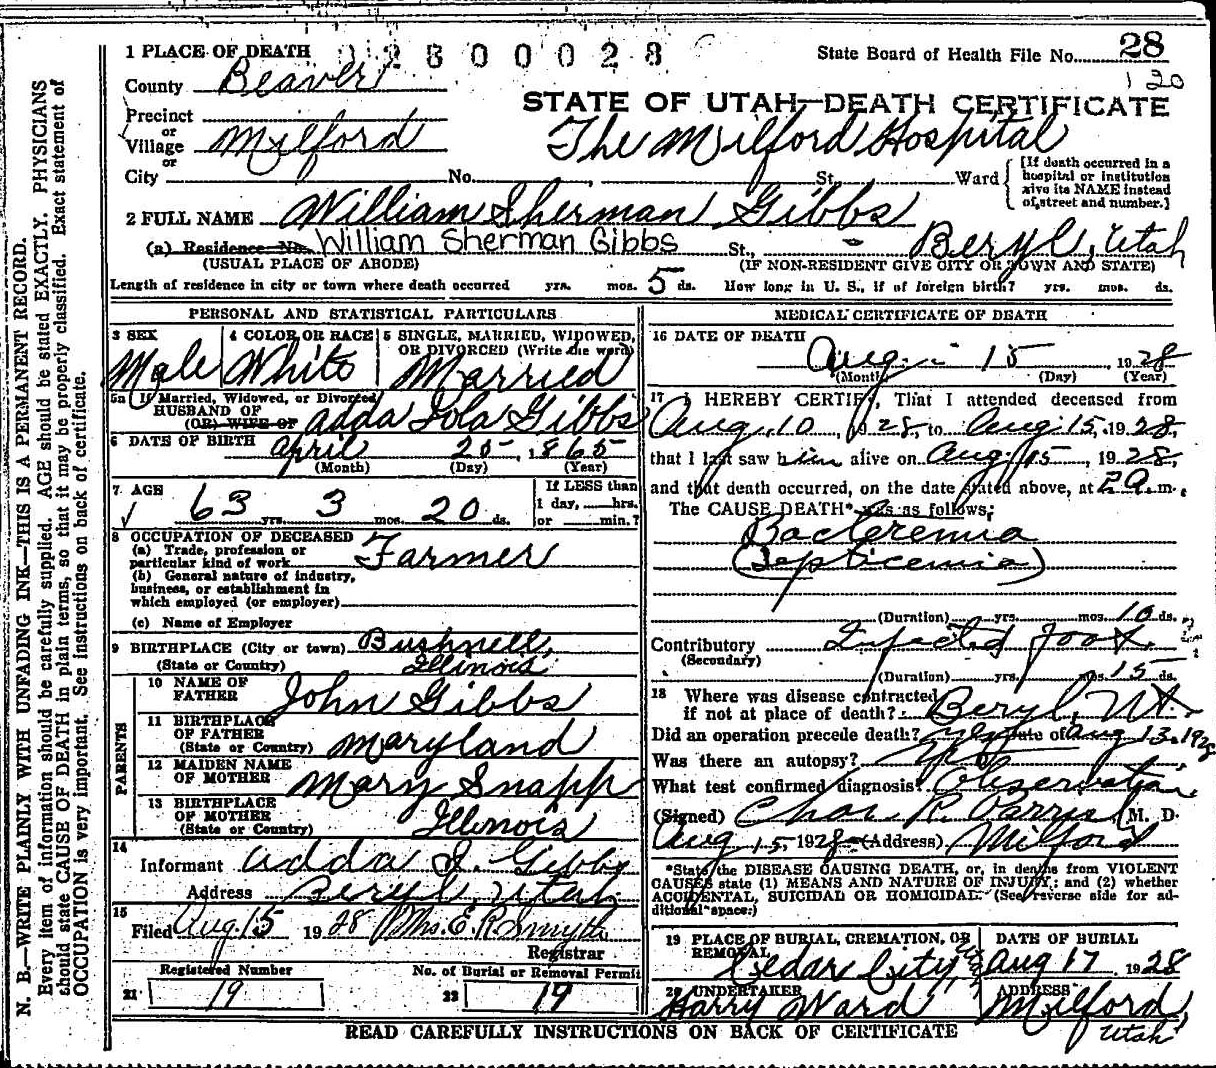 1 PLACE OF DEATH 02800028 State Board of Health File No. 28
County Beaver 120
STATE OF UTAH—DEATH CERTIFICATE
Precinct
or
Village Milford The Milford Hospital
or
City No. , St. Ward
[If death occurred in a
hospital or institution
give its NAME instead
of street and number.]
2 FULL NAME William Sherman Gibbs
(a) Residence No. William Sherman Gibbs St., Beryl, Utah
(USUAL PLACE OF ABODE) (IF NON-RESIDENT GIVE CITY OR TOWN AND STATE)
Length of residence in city or town where death occurred yrs. mos. 5 ds. How long in U. S., if of foreign birth? yrs. mos. ds.
PERSONAL AND STATISTICAL PARTICULARS
3 SEX 4 COLOR OR RACE 5 SINGLE, MARRIED, WIDOWED,
OR DIVORCED (Write the word)
Male White Married
5a If Married, Widowed, or Divorced
HUSBAND OF
(OR) WIFE OF adda Iola Gibbs
6 DATE OF BIRTH april 25, 1865
(Month) (Day) (Year)
7 AGE If LESS than
63 yrs. 3 mos. 20 ds. 1 day, hrs.
or min.?
8 OCCUPATION OF DECEASED
(a) Trade, profession or
particular kind of work Farmer
(b) General nature of industry,
business, or establishment in
which employed (or employer)
(c) Name of Employer
9 BIRTHPLACE (City or town) Bushnell,
(State or Country) Illinois
PARENTS
10 NAME OF
FATHER John Gibbs
11 BIRTHPLACE
OF FATHER
(State or Country) Maryland
12 MAIDEN NAME
OF MOTHER Mary Snapp
13 BIRTHPLACE
OF MOTHER
(State or Country) Illinois
14
Informant Adda I. Gibbs
Address Beryl, Utah
15
Filed Aug. 15 1928 Mrs. E. R. Smyth
Registrar
Registered Number No. of Burial or Removal Permit
21 19 22 19
MEDICAL CERTIFICATE OF DEATH
16 DATE OF DEATH
Aug. - 15 1928
(Month) (Day) (Year)
17 I HEREBY CERTIFY, That I attended deceased from
Aug. 10, 1928, to Aug. 15, 1928,
that I last saw him alive on Aug 15, 1928,
and that death occurred, on the date stated above, at 2 a. m.
The CAUSE DEATH* was as follows:
Bacteremia
(Septicemia)
(Duration) yrs. mos. 10 ds.
Contributory Infected foot
(Secondary)
(Duration) yrs. mos. 15 ds.
18 Where was disease contracted
if not at place of death? Beryl, Ut.
Did an operation precede death? yes Date of Aug 13. 1928
Was there an autopsy?
What test confirmed diagnosis? Observation
(Signed) Chas. R. Parrish M. D.
Aug 15, 1928 (Address) Milford
*State the DISEASE CAUSING DEATH, or, in deaths from VIOLENT
CAUSES state (1) MEANS AND NATURE OF INJURY; and (2) whether
ACCIDENTAL, SUICIDAL OR HOMICIDAL. (See reverse side for ad-
ditional space:)
19 PLACE OF BURIAL, CREMATION, OR
REMOVAL DATE OF BURIAL
Cedar City, Utah Aug 17, 1928
20 UNDERTAKER ADDRESS
Harry Ward Milford,
Utah
READ CAREFULLY INSTRUCTIONS ON BACK OF CERTIFICATE
N. B.—WRITE PLAINLY WITH UNFADING INK—THIS IS A PERMANENT RECORD.
Every item of information should be carefully supplied. AGE should be stated EXACTLY. PHYSICIANS
should state CAUSE OF DEATH in plain terms, so that it may be properly classified. Exact statement of
OCCUPATION is very important. See instructions on back of certificate.